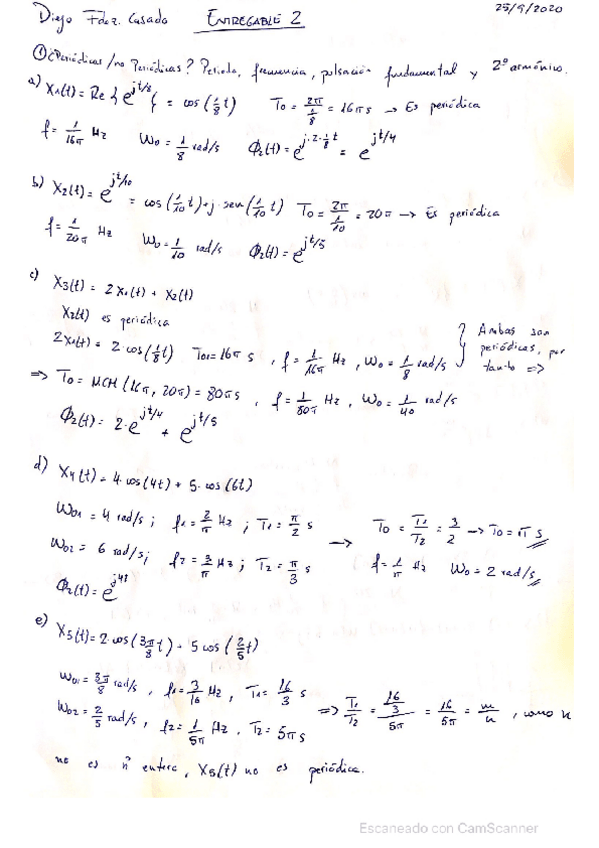 Diego Fdez. Casado ENTREGABLE 2 25/9/2020
① ¿Periódicas/no Periódicas? Periodo, frecuencia, pulsación fundamental y 2º armónico.
a) X1(t) = Re { e^{jt/8} } = cos(1/8 t) T0 = 2π/(1/8) = 16π s → Es periódica
f = 1/16π Hz W0 = 1/8 rad/s Φ2(t) = e^{j·2·1/8 t} = e^{jt/4}
b) X2(t) = e^{jt/10} = cos(1/10 t) + j·sen(1/10 t) T0 = 2π/(1/10) = 20π → Es periódica
f = 1/20π Hz W0 = 1/10 rad/s Φ2(t) = e^{jt/5}
c) X3(t) = 2X1(t) + X2(t)
X2(t) es periódica
2X1(t) = 2·cos(1/8 t) T01 = 16π s, f = 1/16π Hz, W0 = 1/8 rad/s } Ambas son periódicas, por tanto =>
=> T0 = MCM(16π, 20π) = 80π s, f = 1/80π Hz, W0 = 1/40 rad/s
Φ2(t) = 2·e^{jt/4} + e^{jt/5}
d) X4(t) = 4·cos(4t) + 5·cos(6t)
W01 = 4 rad/s; f1 = 2/π Hz; T1 = π/2 s
→ T0 = T1/T2 = 3/2 → T0 = π s
W02 = 6 rad/s; f2 = 3/π Hz; T2 = π/3 s
f = 1/π Hz W0 = 2 rad/s
Φ2(t) = e^{j4t}
e) X5(t) = 2·cos(3π/8 t) + 5 cos(2/5 t)
W01 = 3π/8 rad/s, f1 = 3/16 Hz, T1 = 16/3 s
W02 = 2/5 rad/s, f2 = 1/5π Hz, T2 = 5π s
=> T1/T2 = (16/3)/5π = 16/5π = m/n, como n
no es nº entero, X5(t) no es periódica.
Escaneado con CamScanner